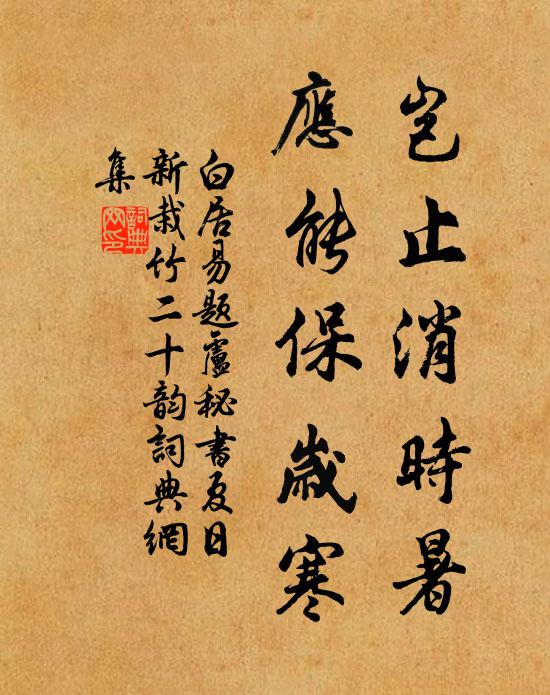 豈止消時暑
應能保歲寒
白居易題盧秘書夏日
新栽竹二十韵詞典網
集
詞典
网印